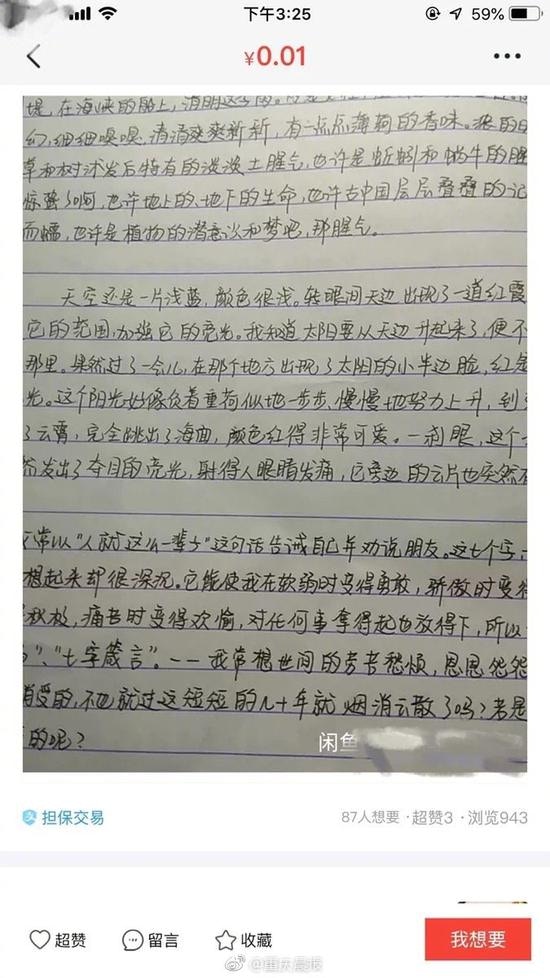 下午3:25
59%
¥0.01
堤,在海峡的船上,清明这季雨。
幻,细细嗅嗅,清清爽爽新新,有一点点薄荷的香味。浓的时
草和树沐发后特有的淡淡土腥气,也许是蚯蚓和蜗牛的腥
惊蛰了啊,也许地上的地下的生命,也许古中国层层叠叠的记
而蠕,也许是植物的潜意识和梦吧,那腥气。
天空还是一片浅蓝,颜色很浅。转眼间天边出现了一道红霞
它的范围,加强它的亮光。我知道太阳要从天边升起来了,便不
那里。果然过了一会儿,在那个地方出现了太阳的小半边脸,红是
光。这个阳光好像负着重荷似地一步步,慢慢地努力上升,到
了云霄,完全跳出了海面,颜色红得非常可爱。一刹眼,这个
发出了夺目的亮光,射得人眼睛发痛,它旁边的云片也突然有
常以"人就这么一辈子"这句话告诫自己并劝说朋友。这七个字,
想起来却很深沉。它能使我在软弱时变得勇敢,骄傲时变得
积极,痛苦时变得欢愉,对任何事拿得起也放得下,所以
"、"七字箴言"。——我常想世间的劳苦愁烦,恩恩怨怨
消受的,不也就过这短短的几十年就烟消云散了吗?若是
的呢?
闲鱼
担保交易
87人想要·超赞3·浏览943
超赞
留言
收藏
我想要
@重庆晨报